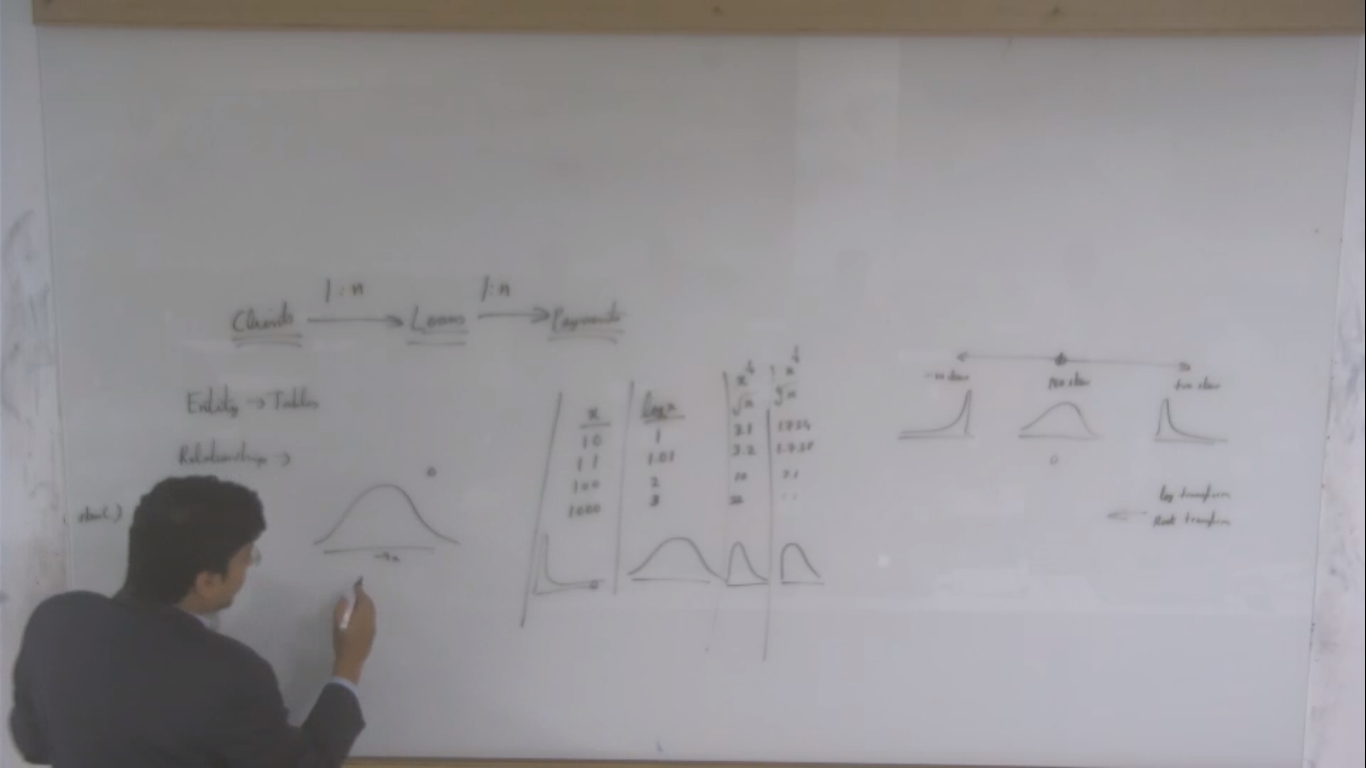 1:n 1:n
Clients → Loans → Payments
Entity → Tables
Relationship →
skew( )
0
x log x x^½ √x x^¼ ∜x
10 1 3.1
11 1.01 3.2
100 2 10
1000 3 32
-ve skew No skew +ve skew
0
log transform
Root transform